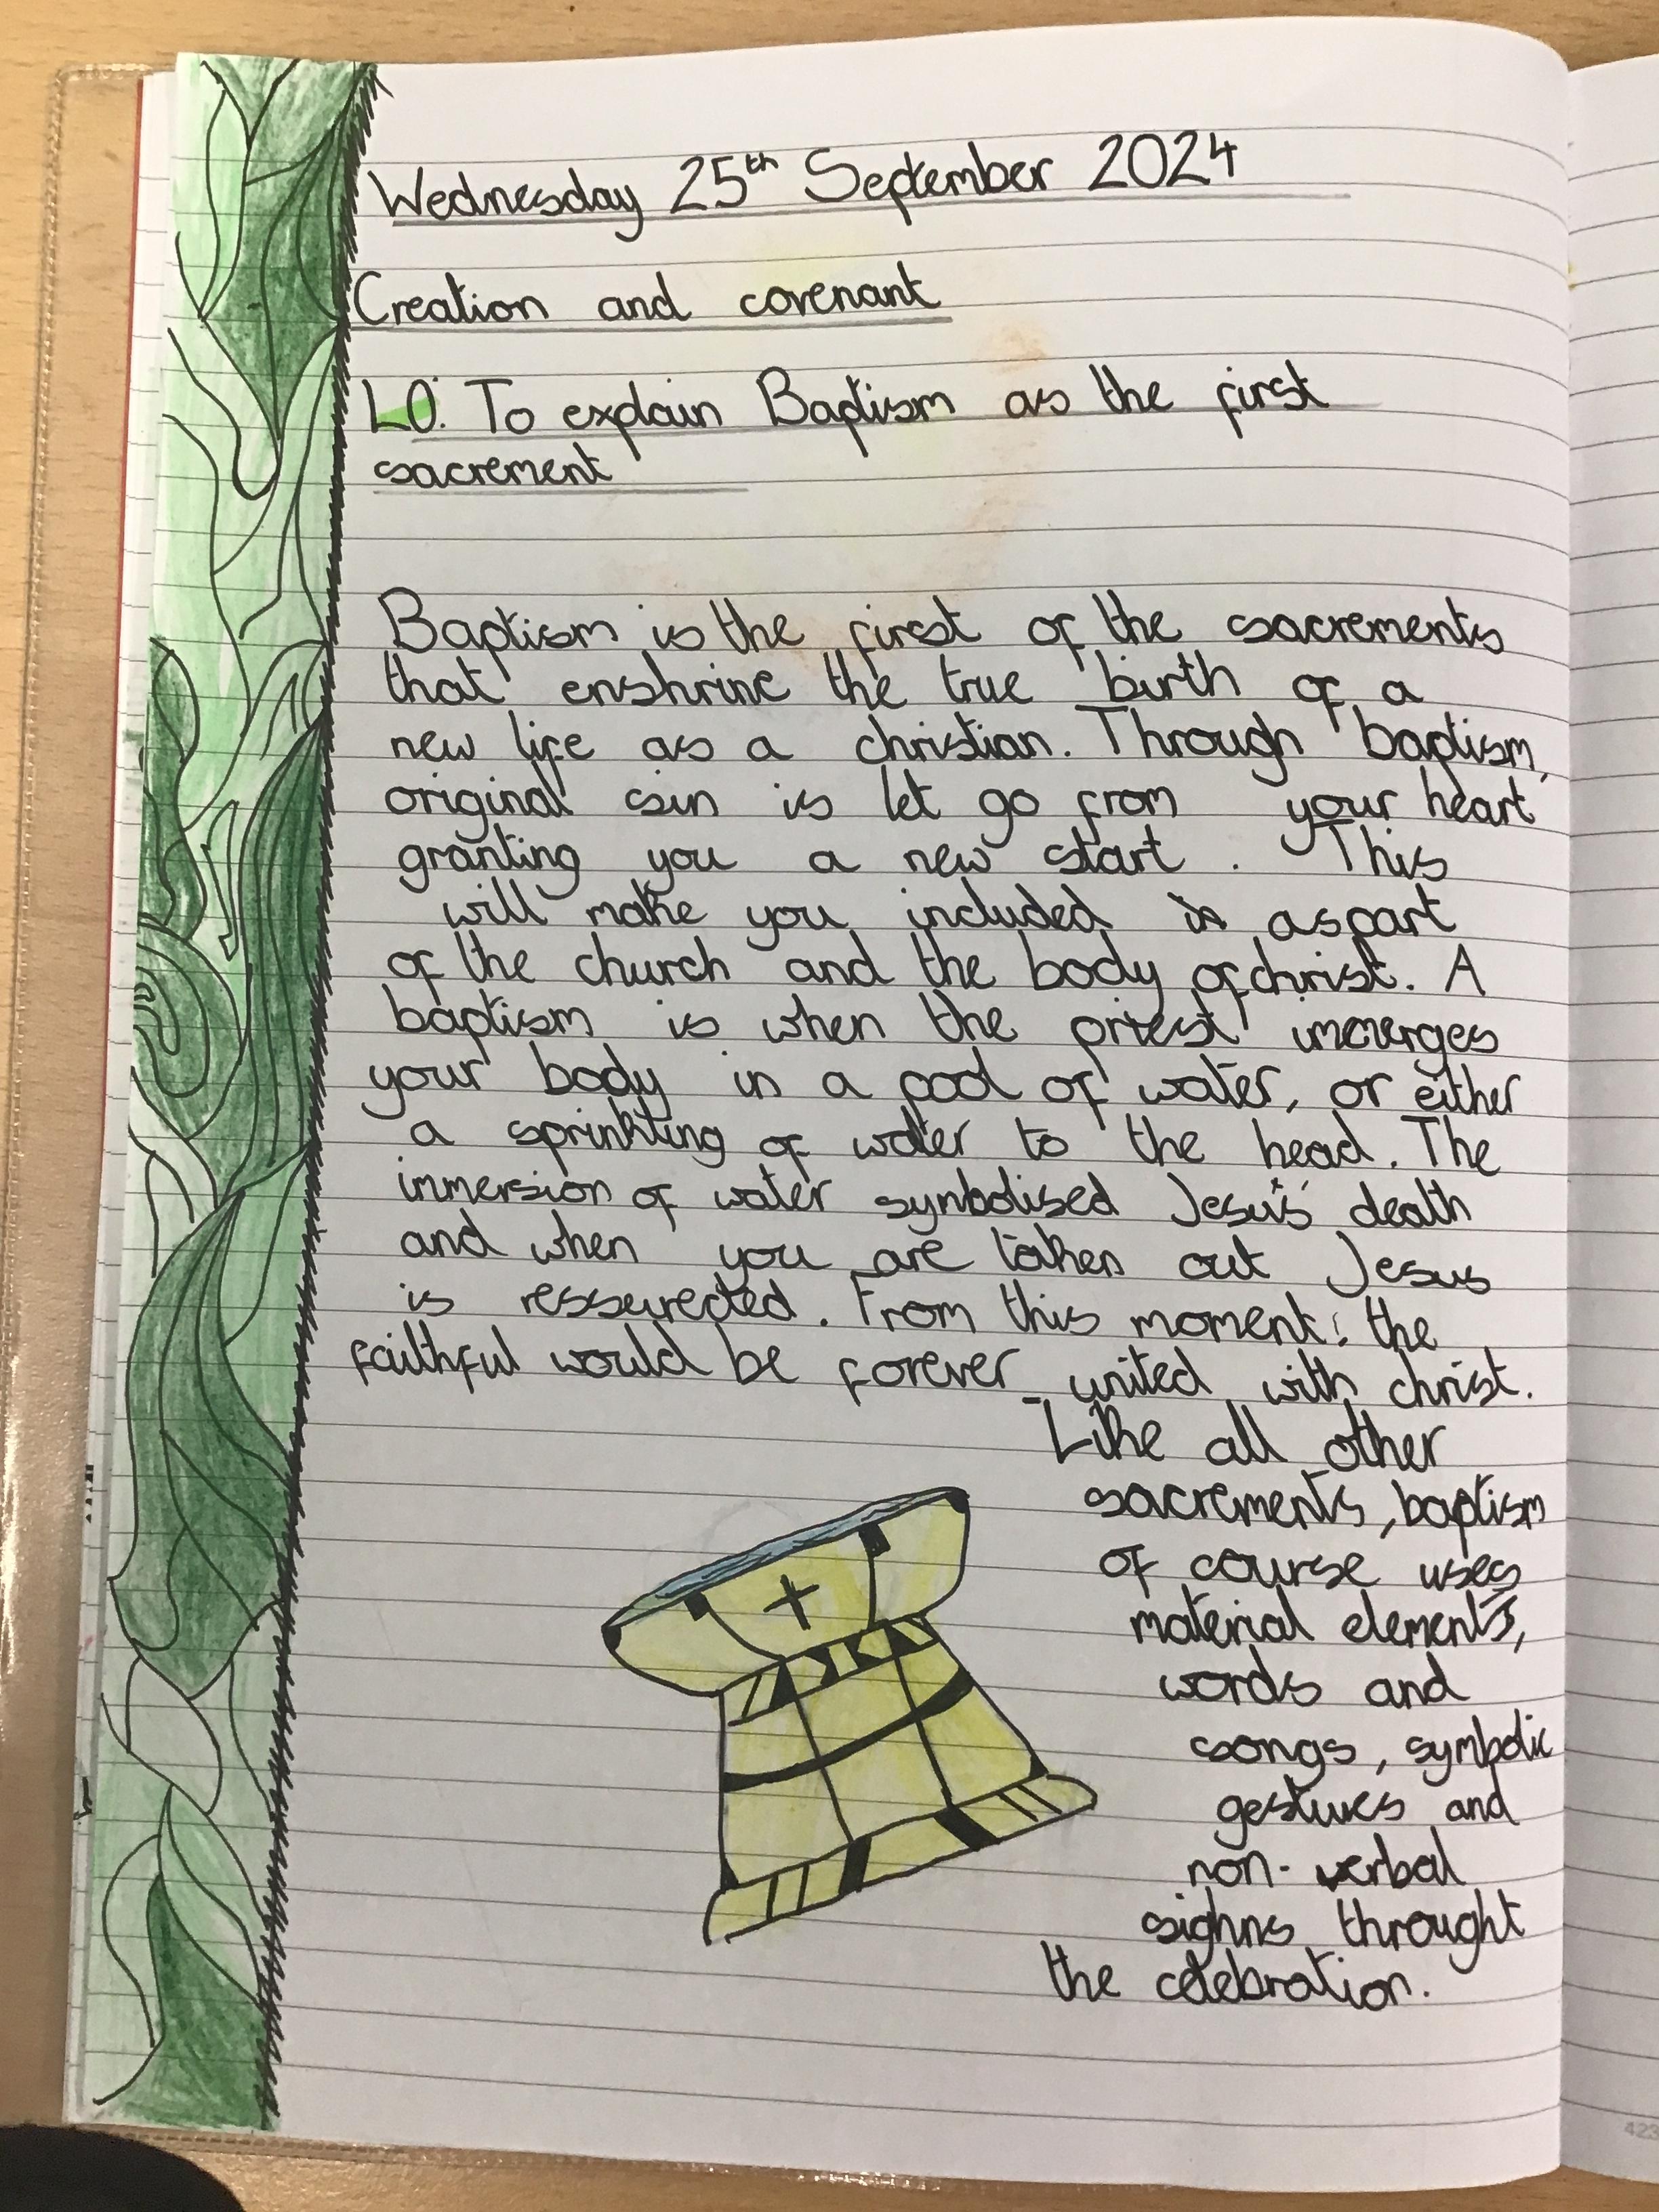 Wednesday 25th September 2024
Creation and covenant
LO: To explain Baptism as the first
sacrement
Baptism is the first of the sacrements
that enshrine the true birth of a
new life as a christian. Through baptism,
original sin is let go from your heart
granting you a new start. This
will make you included as part
of the church and the body of christ. A
baptism is when the priest immerges
your body in a pool of water, or either
a sprinkling of water to the head. The
immersion of water symbolised Jesus' death
and when you are taken out Jesus
is ressurected. From this moment: the
faithful would be forever united with christ.
Like all other
sacrements, baptism
of course uses
material elements,
words and
songs, symbolic
gestures and
non-verbal
sighns throught
the celebration.
423